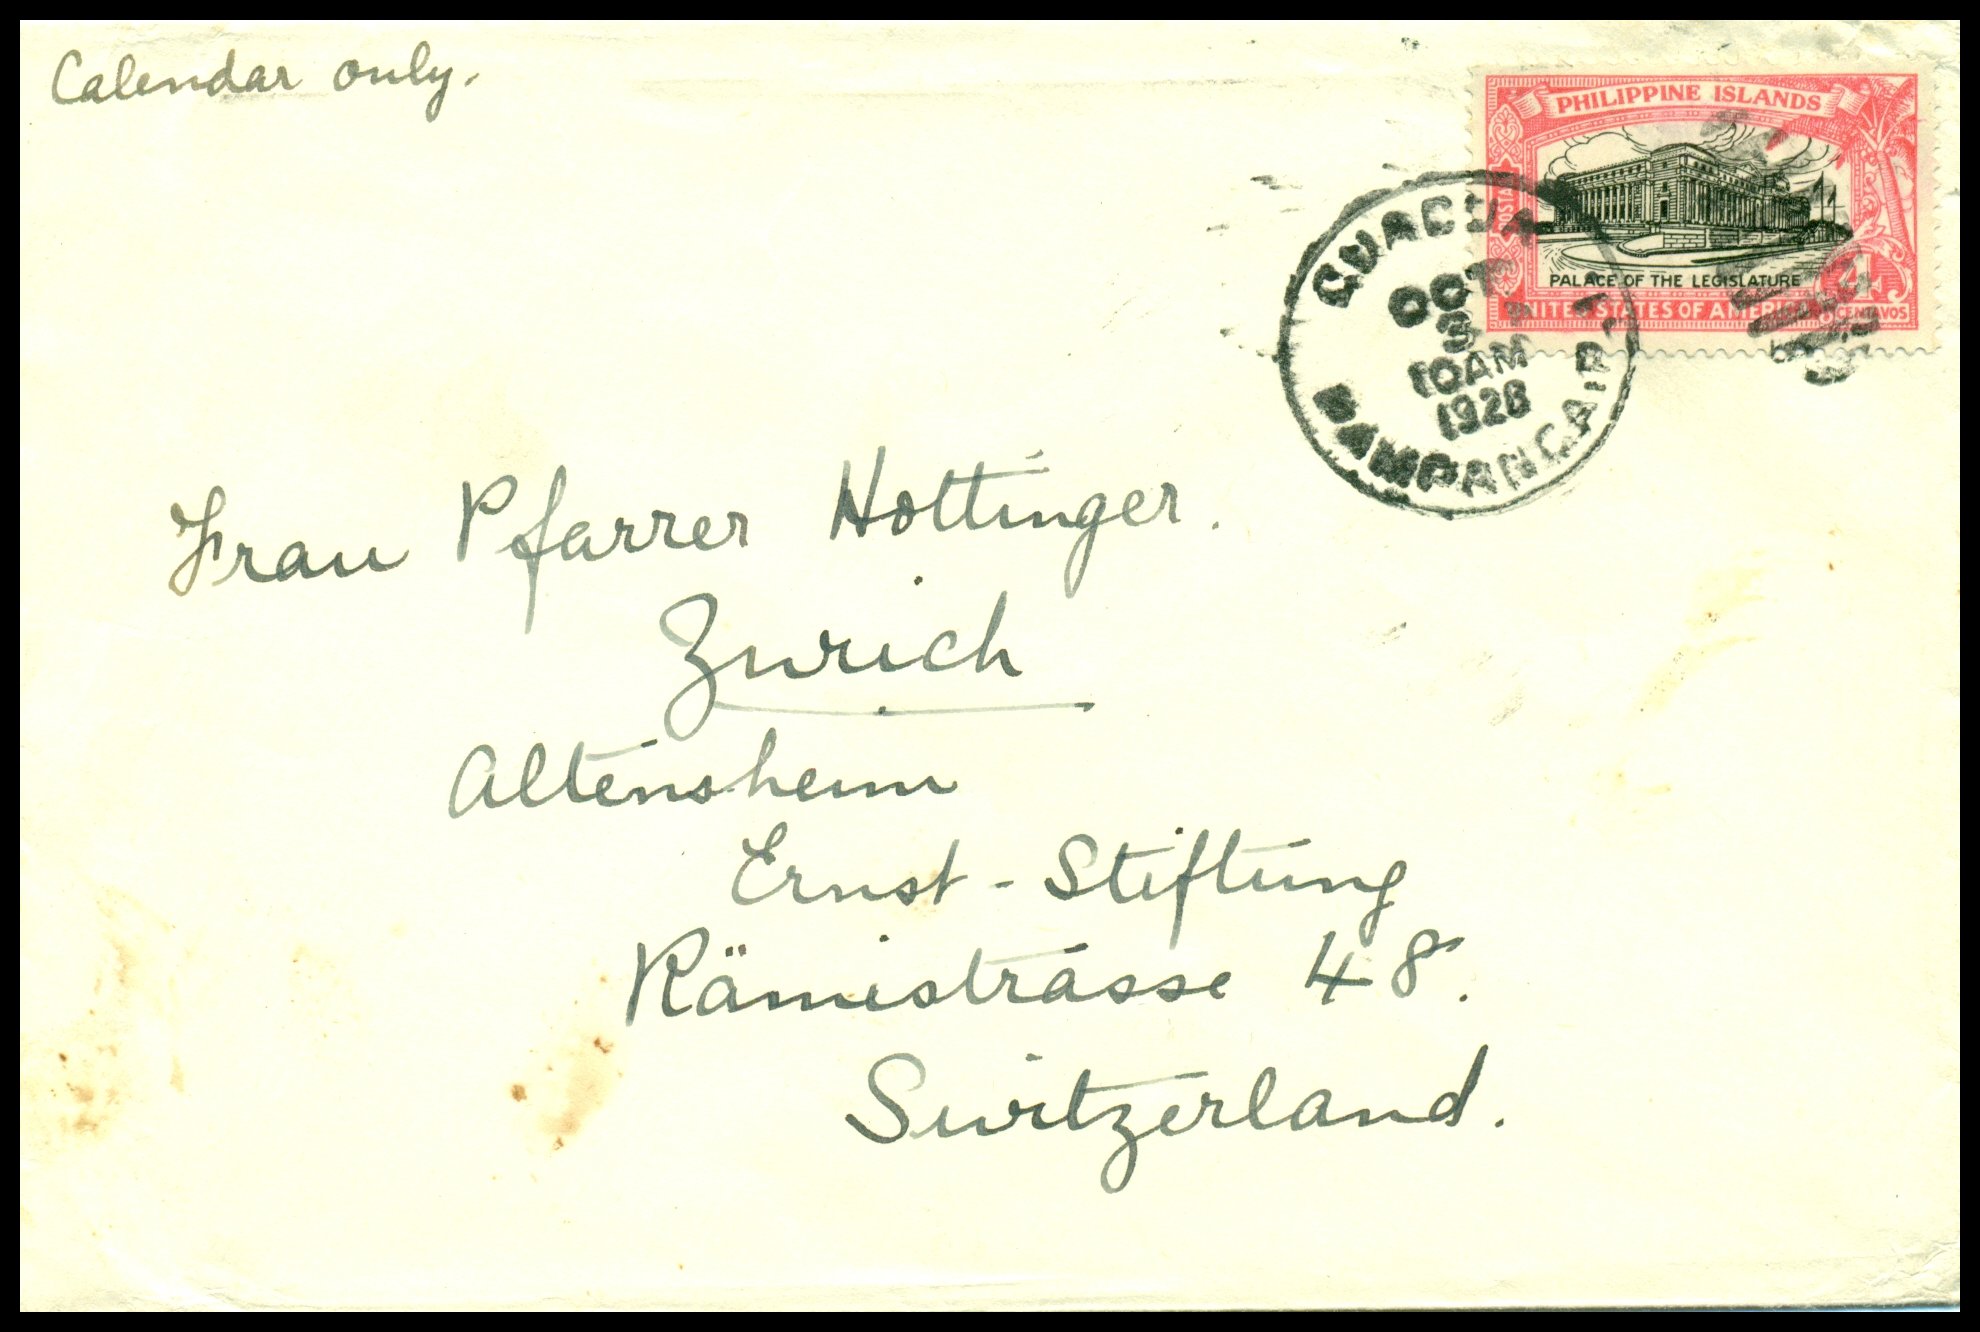 Calendar only.
PHILIPPINE ISLANDS
POSTAGE
PALACE OF THE LEGISLATURE
UNITED STATES OF AMERICA
4
CENTAVOS
GUAGUA
OCT
3
10AM
1928
PAMPANGA, P. I.
Frau Pfarrer Hottinger.
Zurich
Altersheim
Ernst-Stiftung
Rämistrasse 48.
Switzerland.